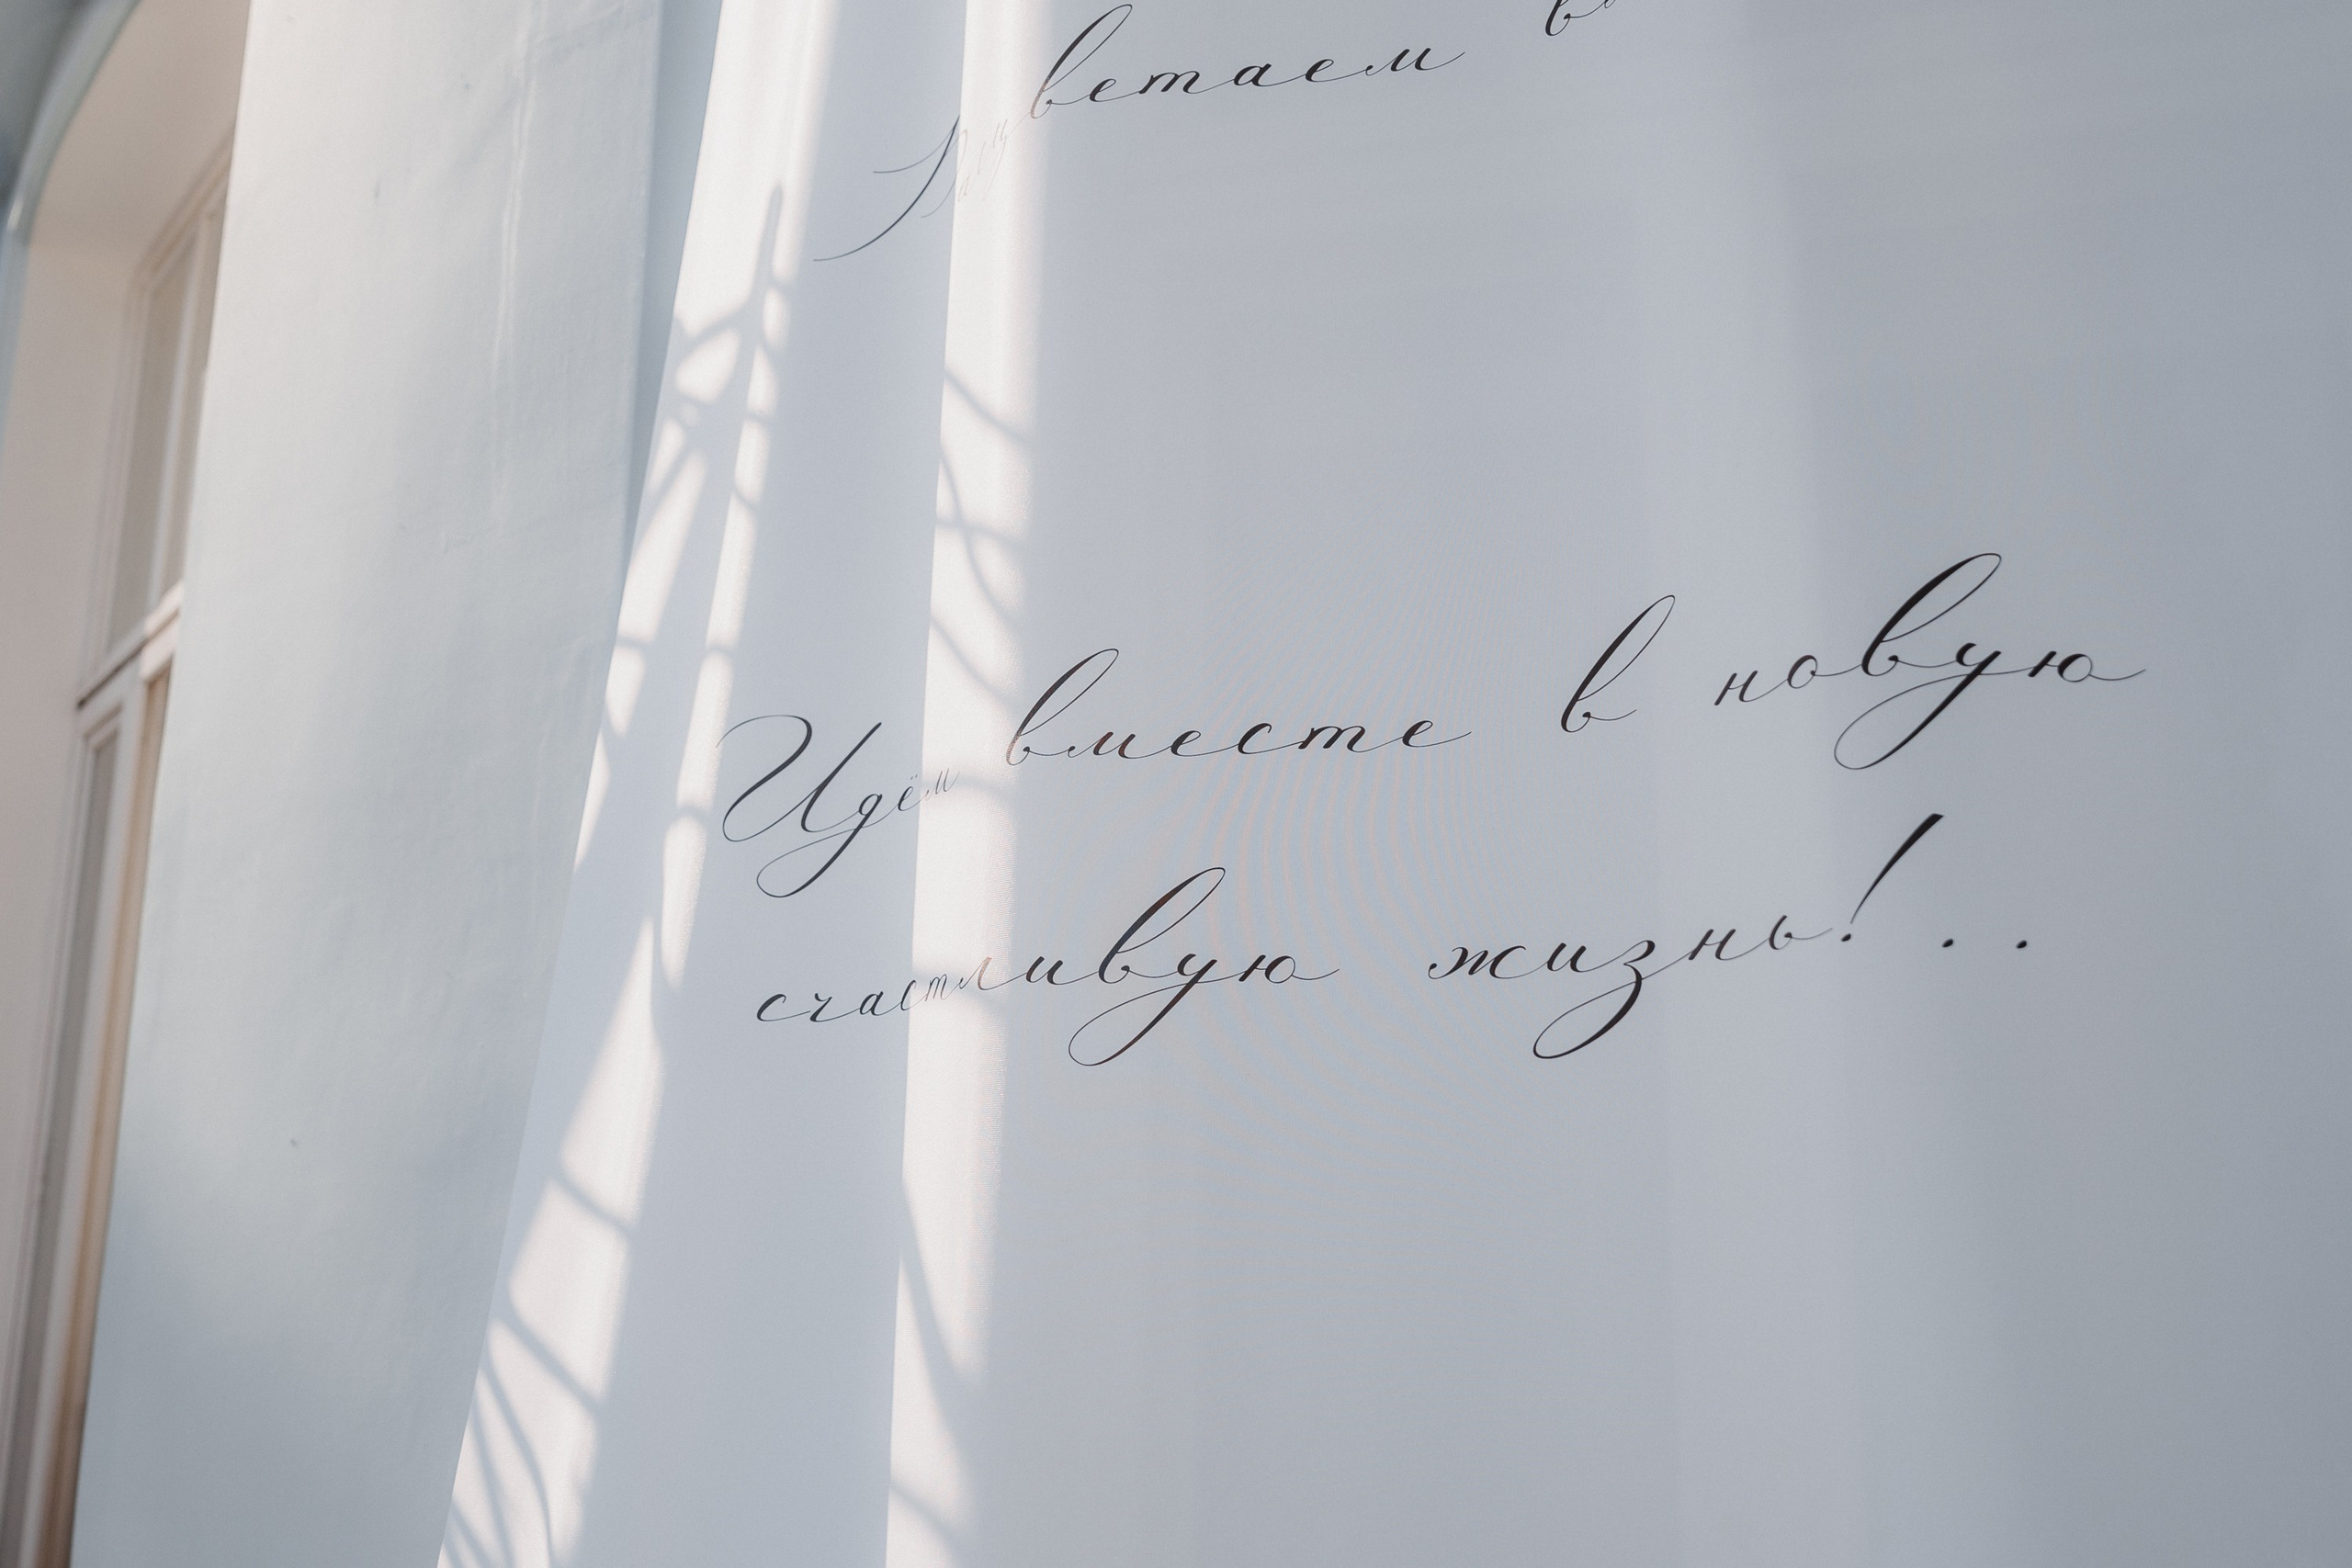 Расцветаем
Идём вместе в новую
счастливую жизнь!..